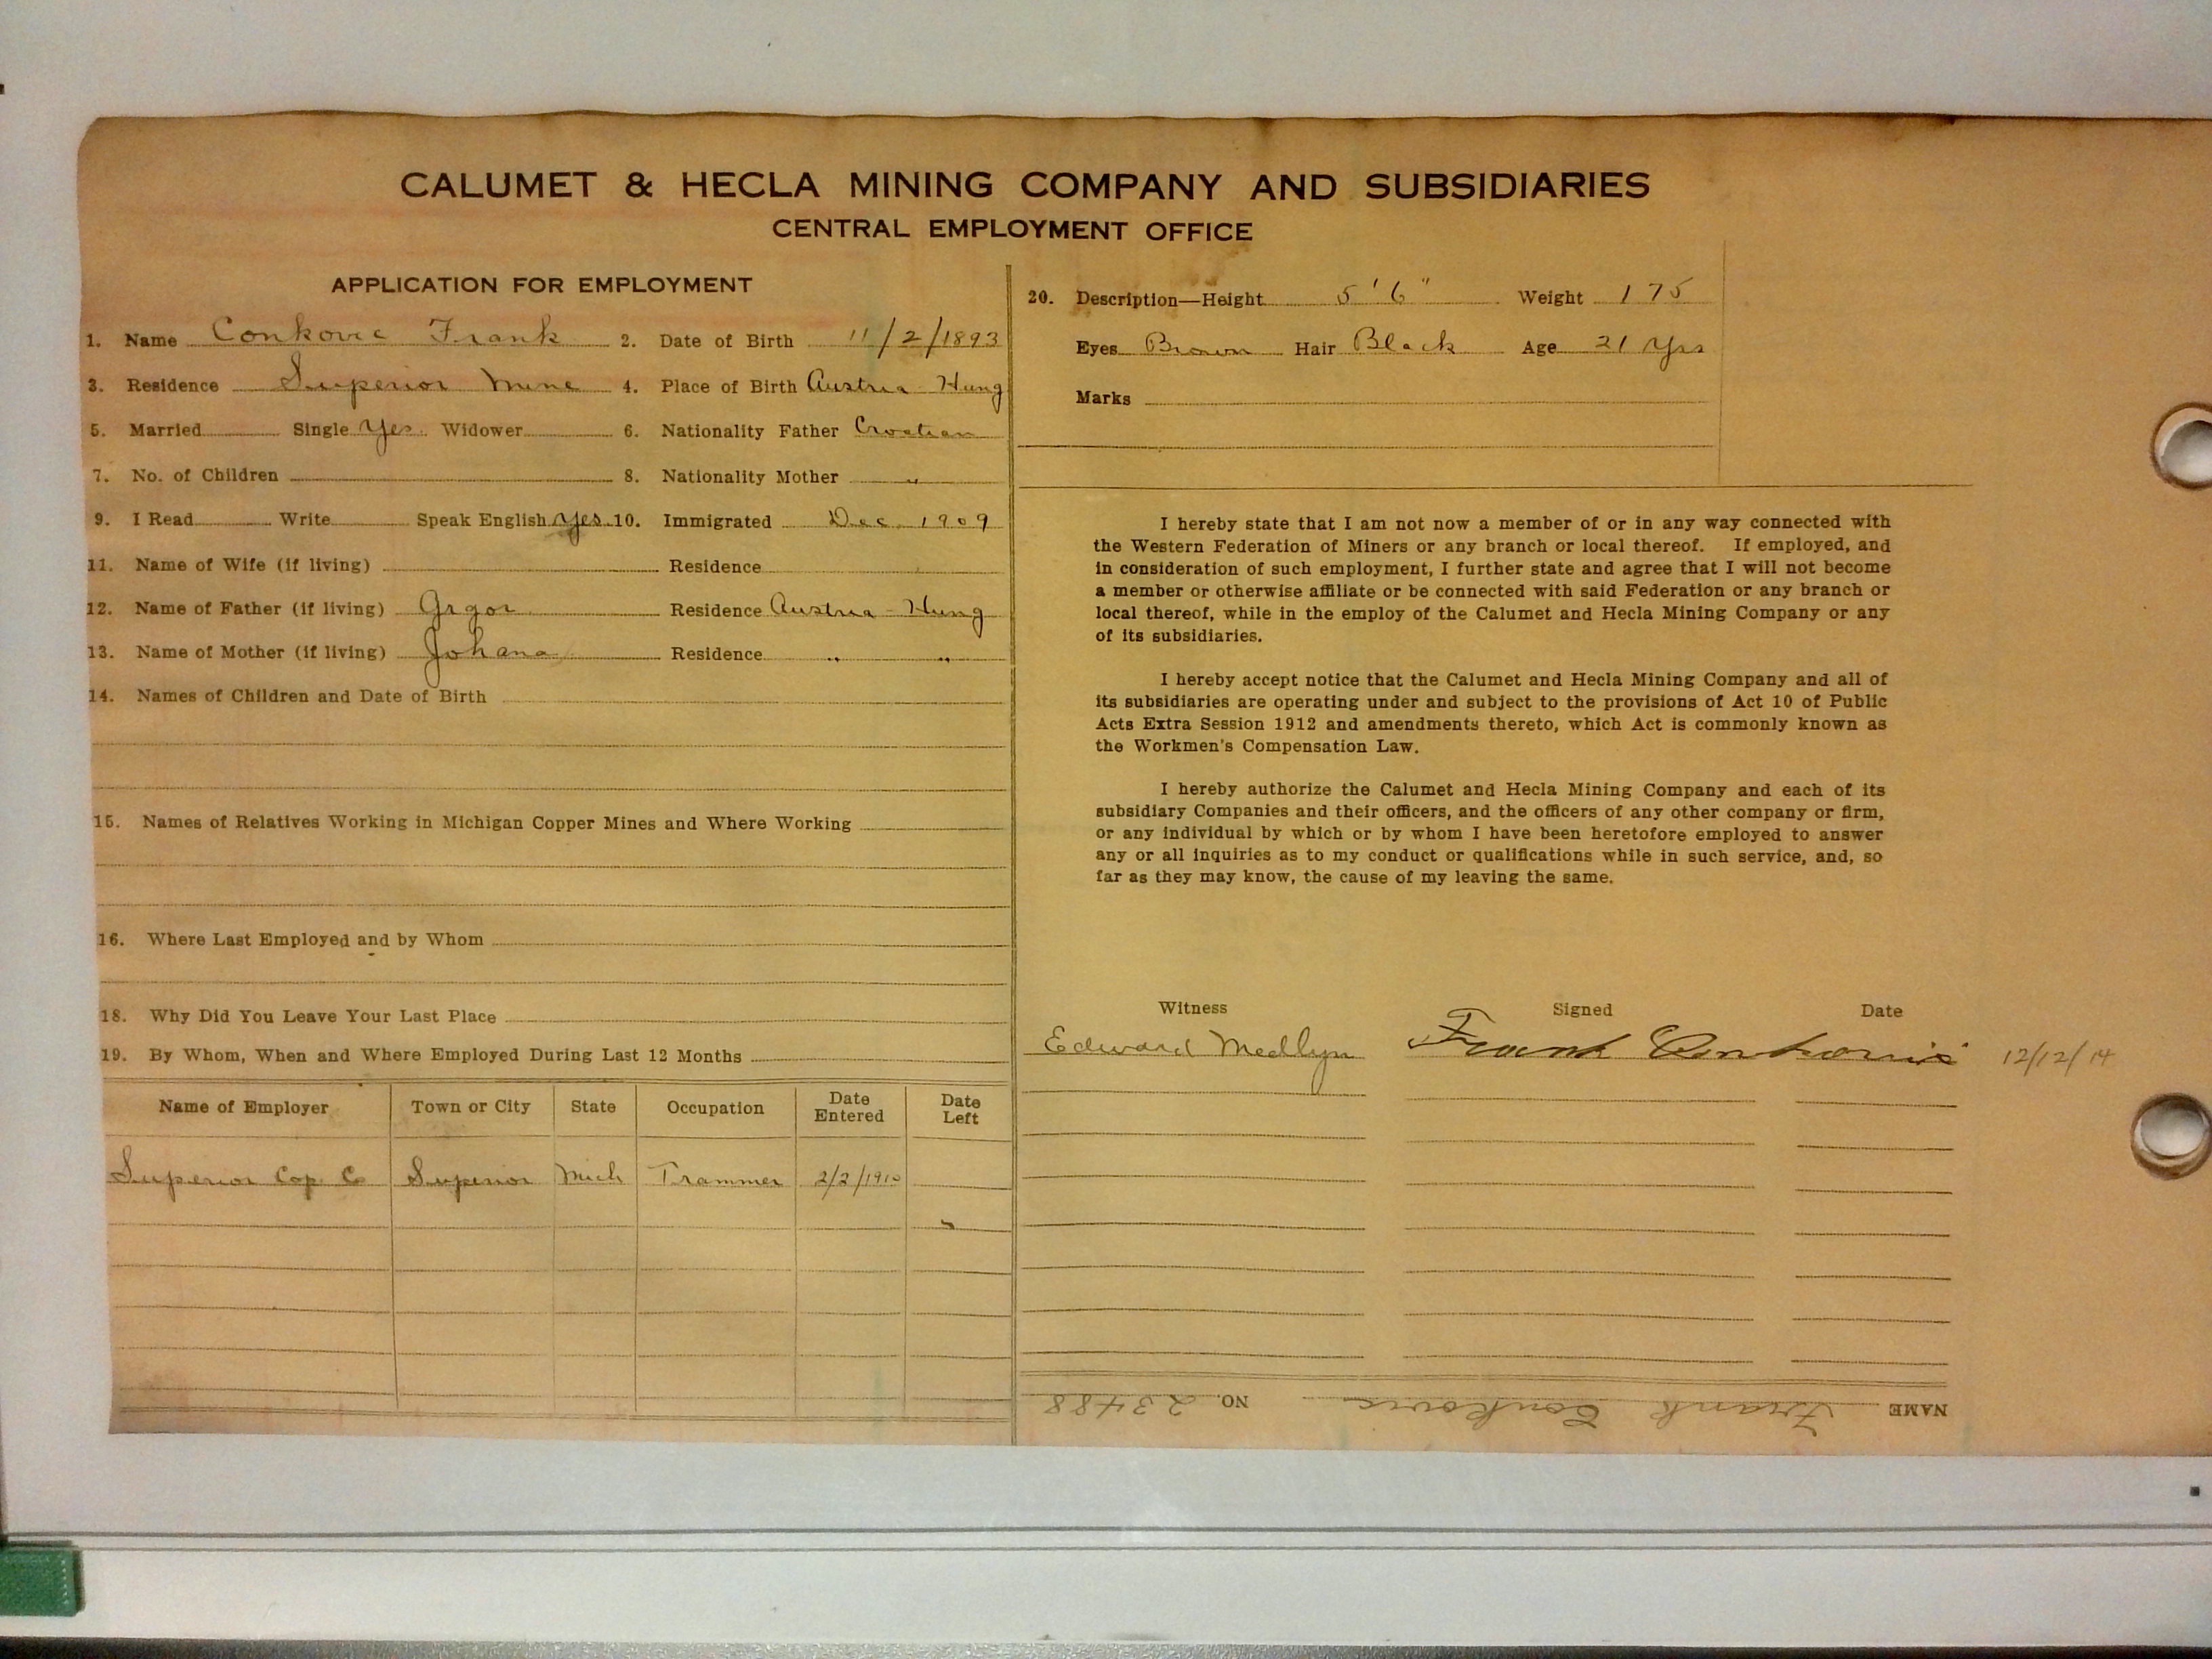 CALUMET & HECLA MINING COMPANY AND SUBSIDIARIES
CENTRAL EMPLOYMENT OFFICE
APPLICATION FOR EMPLOYMENT
1. Name Conkovic Frank 2. Date of Birth 11/2/1893
3. Residence Superior Mine 4. Place of Birth Austria-Hung
5. Married Single Yes Widower 6. Nationality Father Croatian
7. No. of Children 8. Nationality Mother "
9. I Read Write Speak English Yes 10. Immigrated Dec 1909
11. Name of Wife (if living) Residence
12. Name of Father (if living) Grgor Residence Austria-Hung
13. Name of Mother (if living) Johana Residence " "
14. Names of Children and Date of Birth
15. Names of Relatives Working in Michigan Copper Mines and Where Working
16. Where Last Employed and by Whom
18. Why Did You Leave Your Last Place
19. By Whom, When and Where Employed During Last 12 Months
Name of Employer Town or City State Occupation Date Entered Date Left
Superior Cop Co Superior Mich Trammer 2/2/1910
20. Description—Height 5'6" Weight 175
Eyes Brown Hair Black Age 21 Yrs
Marks
I hereby state that I am not now a member of or in any way connected with
the Western Federation of Miners or any branch or local thereof. If employed, and
in consideration of such employment, I further state and agree that I will not become
a member or otherwise affiliate or be connected with said Federation or any branch or
local thereof, while in the employ of the Calumet and Hecla Mining Company or any
of its subsidiaries.
I hereby accept notice that the Calumet and Hecla Mining Company and all of
its subsidiaries are operating under and subject to the provisions of Act 10 of Public
Acts Extra Session 1912 and amendments thereto, which Act is commonly known as
the Workmen's Compensation Law.
I hereby authorize the Calumet and Hecla Mining Company and each of its
subsidiary Companies and their officers, and the officers of any other company or firm,
or any individual by which or by whom I have been heretofore employed to answer
any or all inquiries as to my conduct or qualifications while in such service, and, so
far as they may know, the cause of my leaving the same.
Witness Signed Date
Edward Medlyn Frank Conkovic 12/12/14
NAME Frank Conkovic NO. 23488